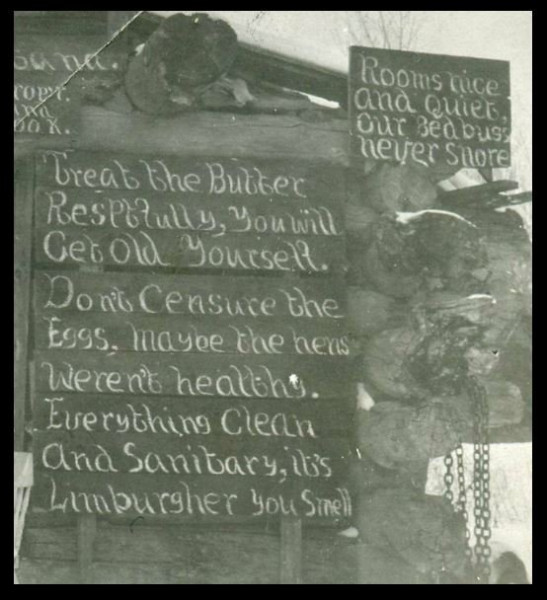 sana.
Rooms nice
and quiet,
our Bedbugs
never snore
Treat the Butter
Resptfully, you will
Get Old Yourself.
Dont Censure the
Eggs. Maybe the hens
Weren't healthy.
Everything Clean
And Sanitary, it's
Limburgher you Smell